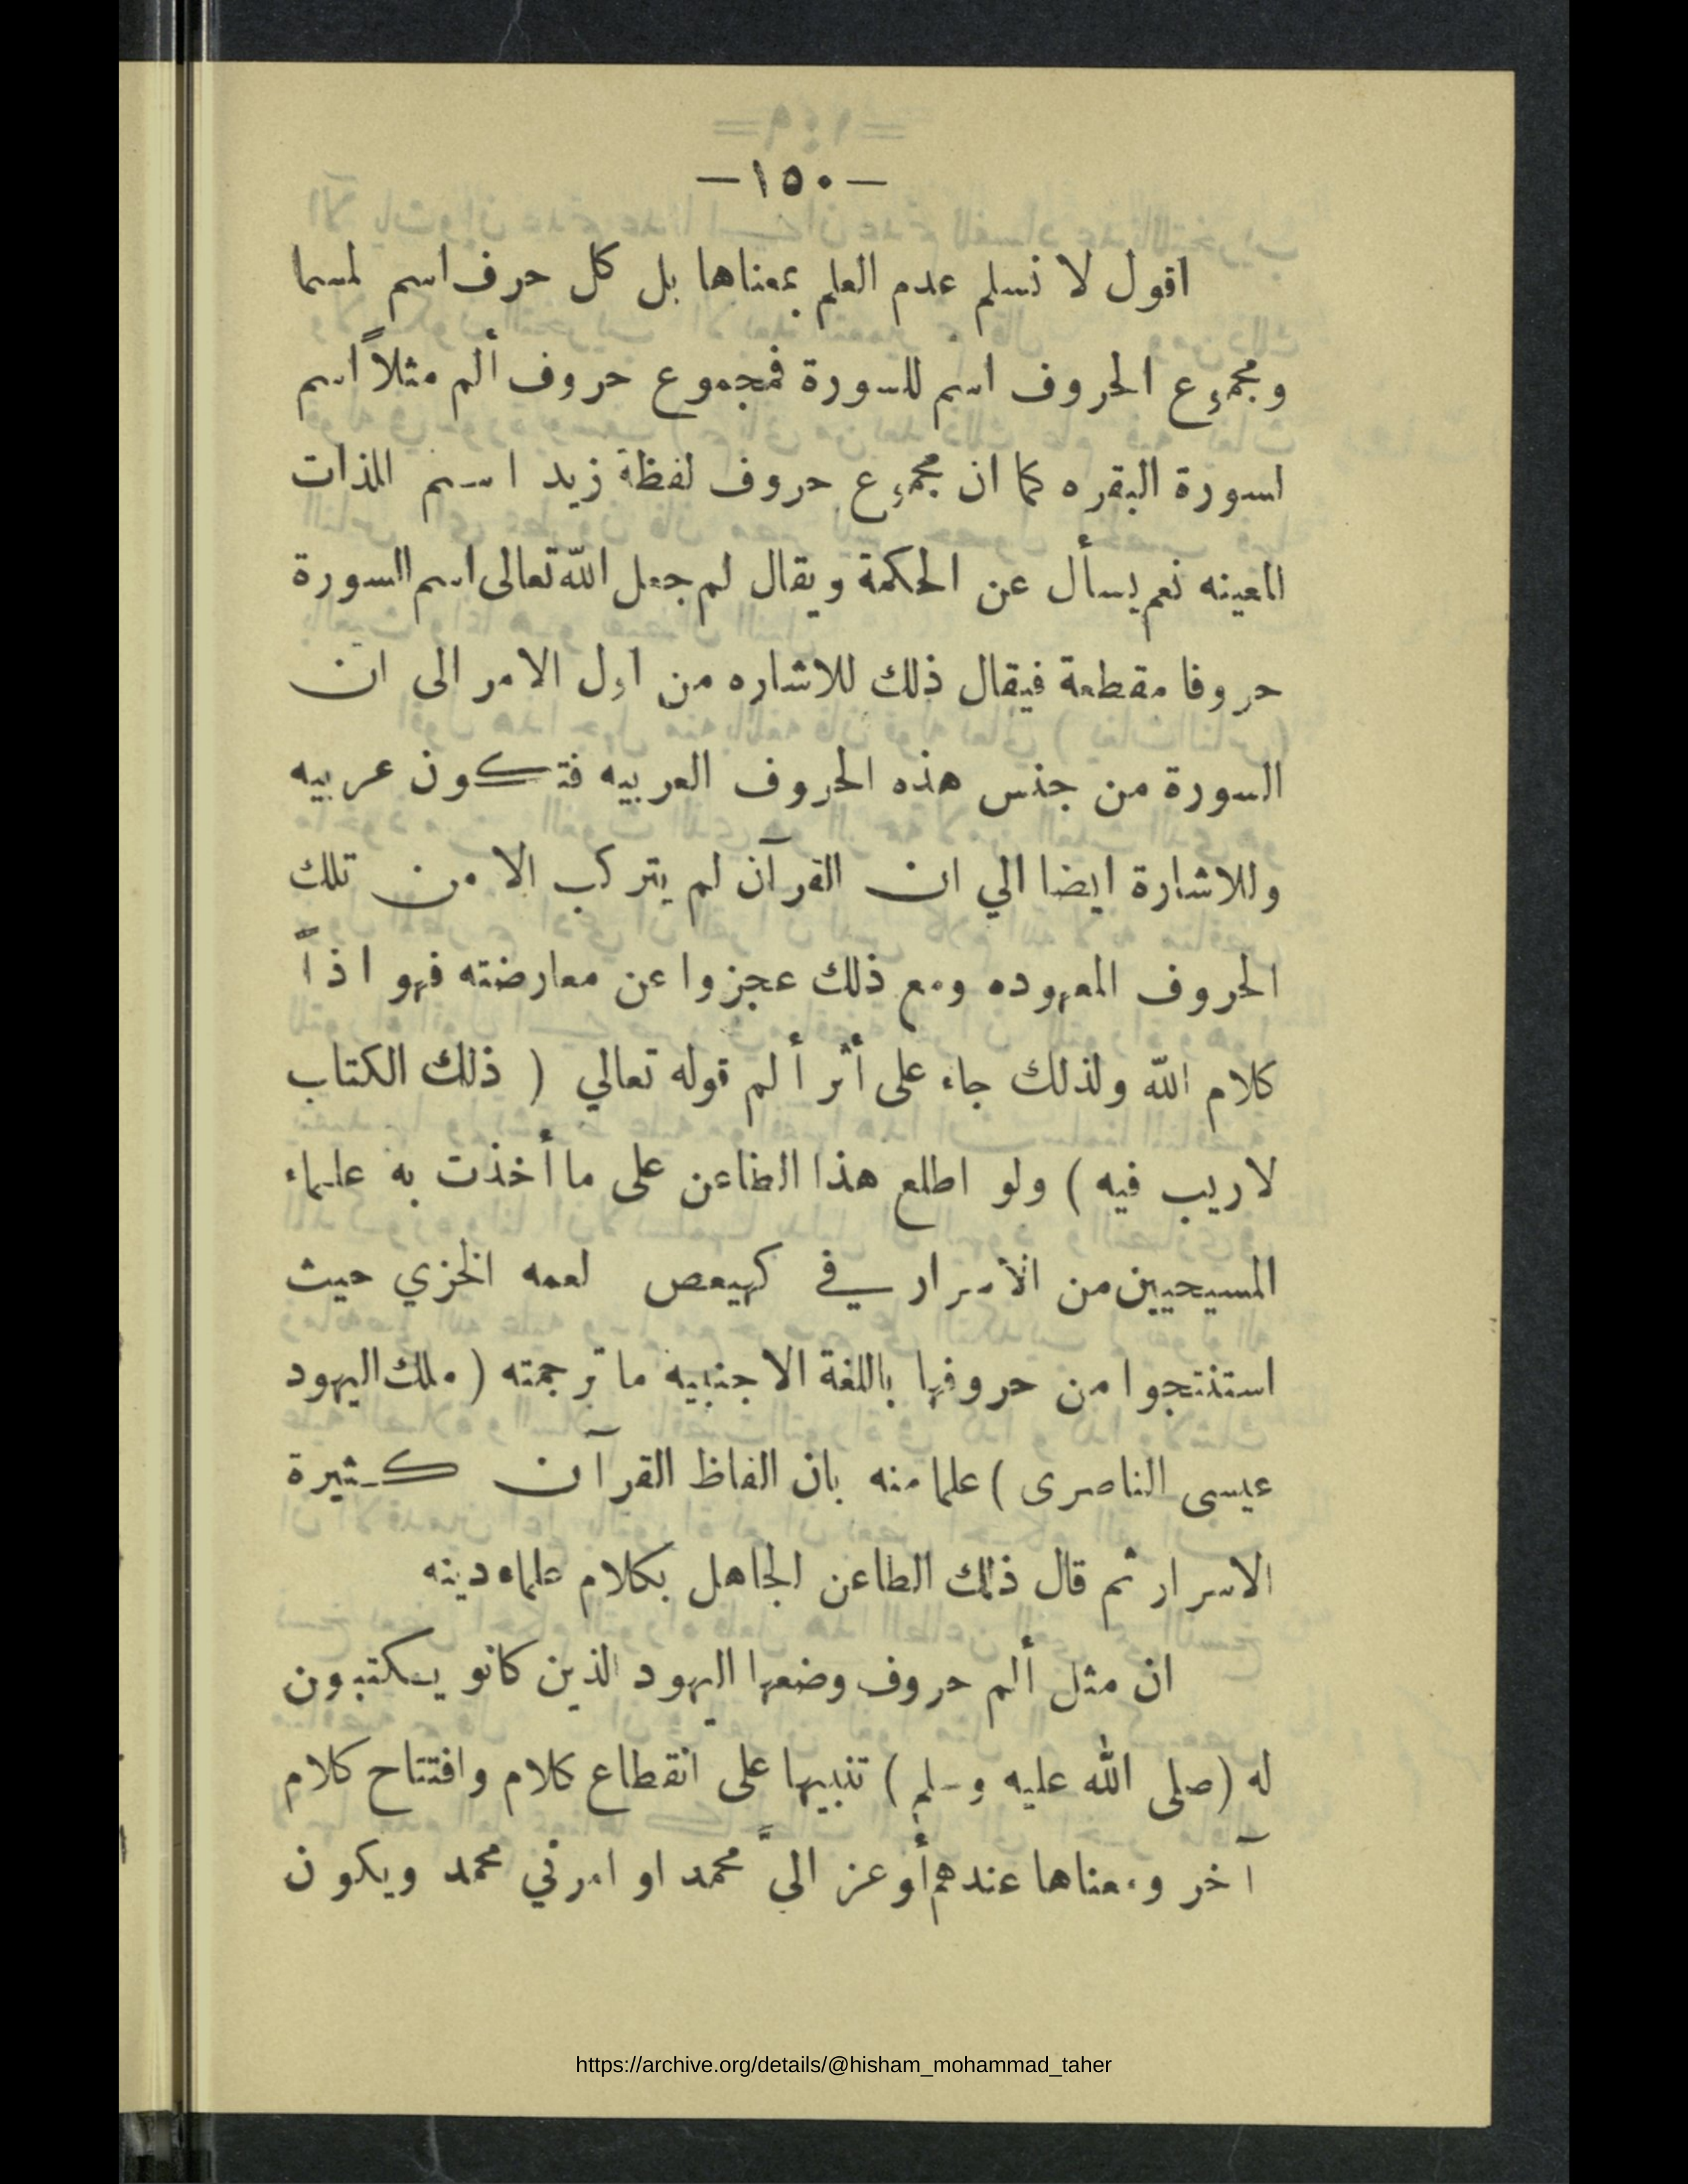 —١٥٠—
اقول لا نسلم عدم العلم بمعناها بل كل حرف اسم لمسما
ومجموع الحروف اسم للسورة فمجموع حروف ألم مثلاً اسم
لسورة البقره كما ان مجموع حروف لفظة زيد اسم للذات
المعينه نعم يسأل عن الحكمة ويقال لم جعل الله تعالى اسم السورة
حروفا مقطعة فيقال ذلك للاشاره من اول الامر الى ان
السورة من جنس هذه الحروف العربيه فتكون عربيه
وللاشارة ايضا الي ان القرآن لم يتركب الا من تلك
الحروف المعهوده ومع ذلك عجزوا عن معارضته فهو اذاً
كلام الله ولذلك جاء على أثر ألم قوله تعالي ( ذلك الكتاب
لاريب فيه ) ولو اطلع هذا الطاعن على ما أخذت به علماء
المسيحيين من الأسرار في كهيعص لعمه الخزي حيث
استنتجوا من حروفها باللغة الاجنبيه ما ترجمته ( ملك اليهود
عيسى الناصرى ) علما منه بان الفاظ القرآن كثيرة
الاسرار ثم قال ذلك الطاعن الجاهل بكلام علماء دينه
ان مثل ألم حروف وضعها اليهود الذين كانو يكتبون
له (صلى الله عليه وسلم ) تنبيها على انقطاع كلام وافتتاح كلام
آخر ومعناها عندهم أوعز اليَّ محمد او امرني محمد ويكون
https://archive.org/details/@hisham_mohammad_taher